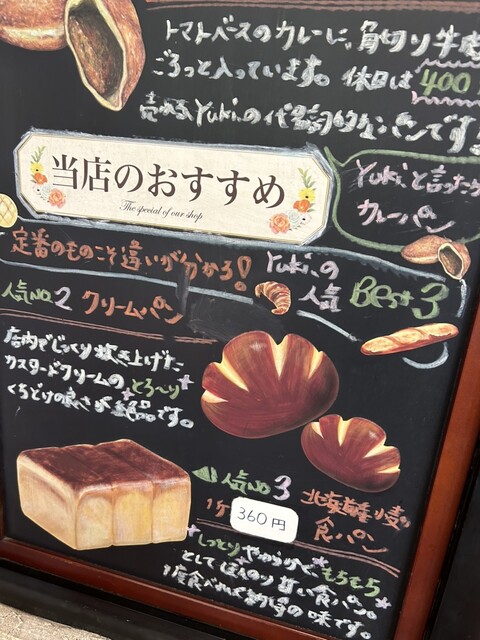 トマトベースのカレーに、角切り牛肉
ごろっと入っています。休日は400
売切れ Yuki.の代名詞的なパンです。
当店のおすすめ
The special of our shop
Yuki.と言ったら
カレーパン
定番のものこそ違いが分かる!
Yuki.の
人気 Best 3
人気NO.2 クリームパン
店内でじっくり炊き上げた
カスタードクリームのとろ〜り
くちどけの良さが絶品です。
人気NO.3 北海道産小麦の
食パン
1ケ 360円
しっとりやわらかで、もちもち
としてほんのり甘い食パン。
1度食べれば納得の味です。